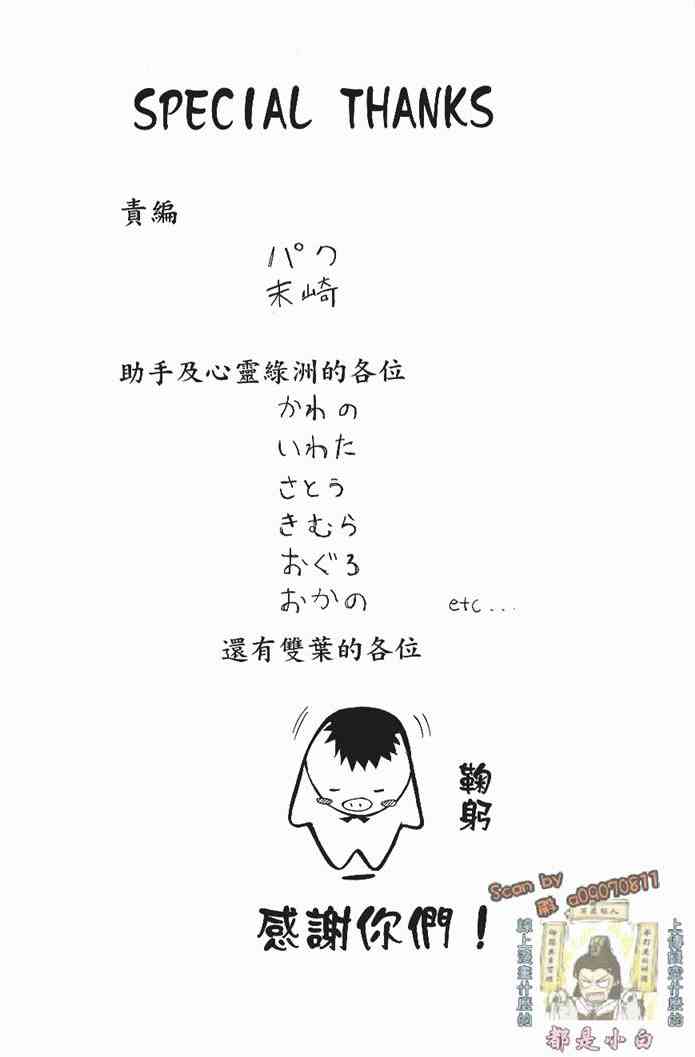 SPECIAL THANKS
責編
パク
末崎
助手及心靈綠洲的各位
かわの
いわた
さとう
きむら
おぐろ
おかの etc...
還有雙葉的各位
鞠躬
感謝你們！
Scan by
殿 a09070811
上傳錢空什麼的
線上漫畫什麼的
都是小白